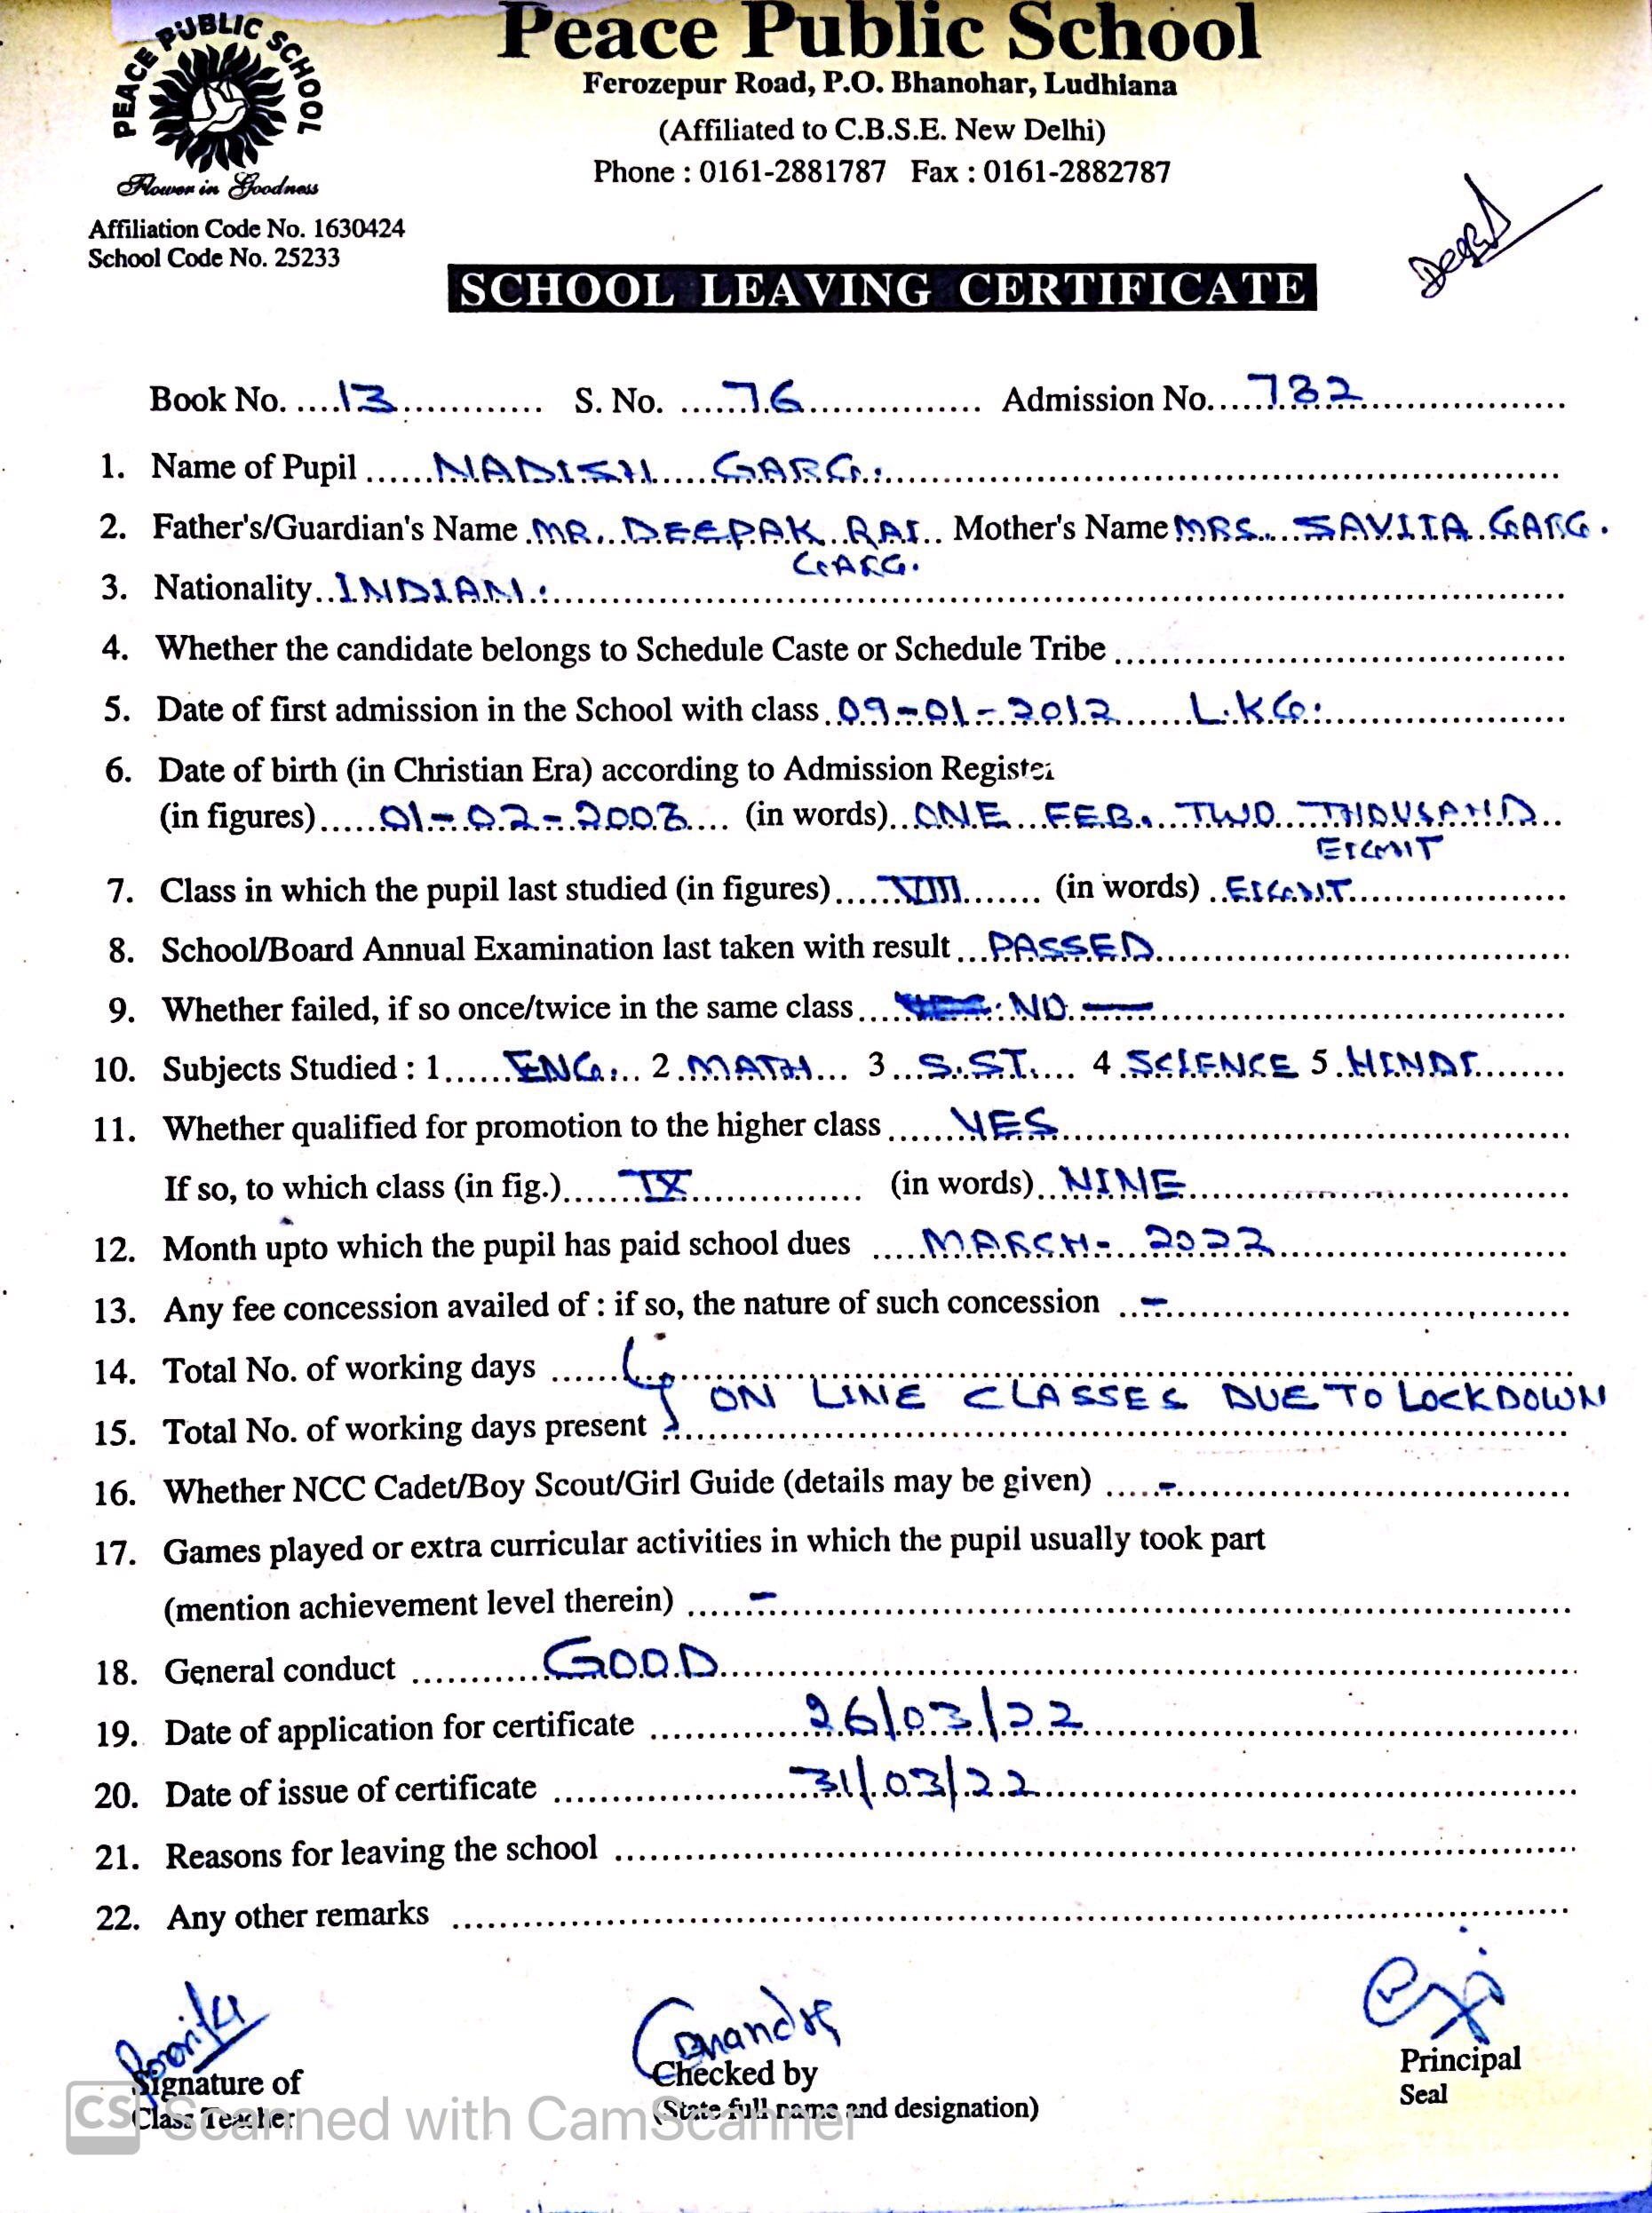 PEACE PUBLIC SCHOOL
Flower in Goodness
Peace Public School
Ferozepur Road, P.O. Bhanohar, Ludhiana
(Affiliated to C.B.S.E. New Delhi)
Phone : 0161-2881787 Fax : 0161-2882787
Affiliation Code No. 1630424
School Code No. 25233
SCHOOL LEAVING CERTIFICATE
Book No. 13 S. No. 76 Admission No. 732
1. Name of Pupil NADISH GARG.
2. Father's/Guardian's Name MR. DEEPAK RAI Mother's Name MRS. SAVITA GARG.
GARG.
3. Nationality INDIAN.
4. Whether the candidate belongs to Schedule Caste or Schedule Tribe
5. Date of first admission in the School with class 09-01-2012 L.K.G.
6. Date of birth (in Christian Era) according to Admission Register
(in figures) 01-02-2008 (in words) ONE FEB. TWO THOUSAND
EIGHT
7. Class in which the pupil last studied (in figures) VIII (in words) EIGHT
8. School/Board Annual Examination last taken with result PASSED
9. Whether failed, if so once/twice in the same class NO —
10. Subjects Studied : 1 ENG. 2 MATH 3 S.ST. 4 SCIENCE 5 HINDI
11. Whether qualified for promotion to the higher class YES
If so, to which class (in fig.) IX (in words) NINE
12. Month upto which the pupil has paid school dues MARCH- 2022
13. Any fee concession availed of : if so, the nature of such concession -
14. Total No. of working days
ON LINE CLASSES DUE TO LOCKDOWN
15. Total No. of working days present
16. Whether NCC Cadet/Boy Scout/Girl Guide (details may be given) -
17. Games played or extra curricular activities in which the pupil usually took part
(mention achievement level therein) -
18. General conduct GOOD
19. Date of application for certificate 26/03/22
20. Date of issue of certificate 31/03/22
21. Reasons for leaving the school
22. Any other remarks
Signature of
Class Teacher
Checked by
(State full name and designation)
Principal
Seal
CS Scanned with CamScanner